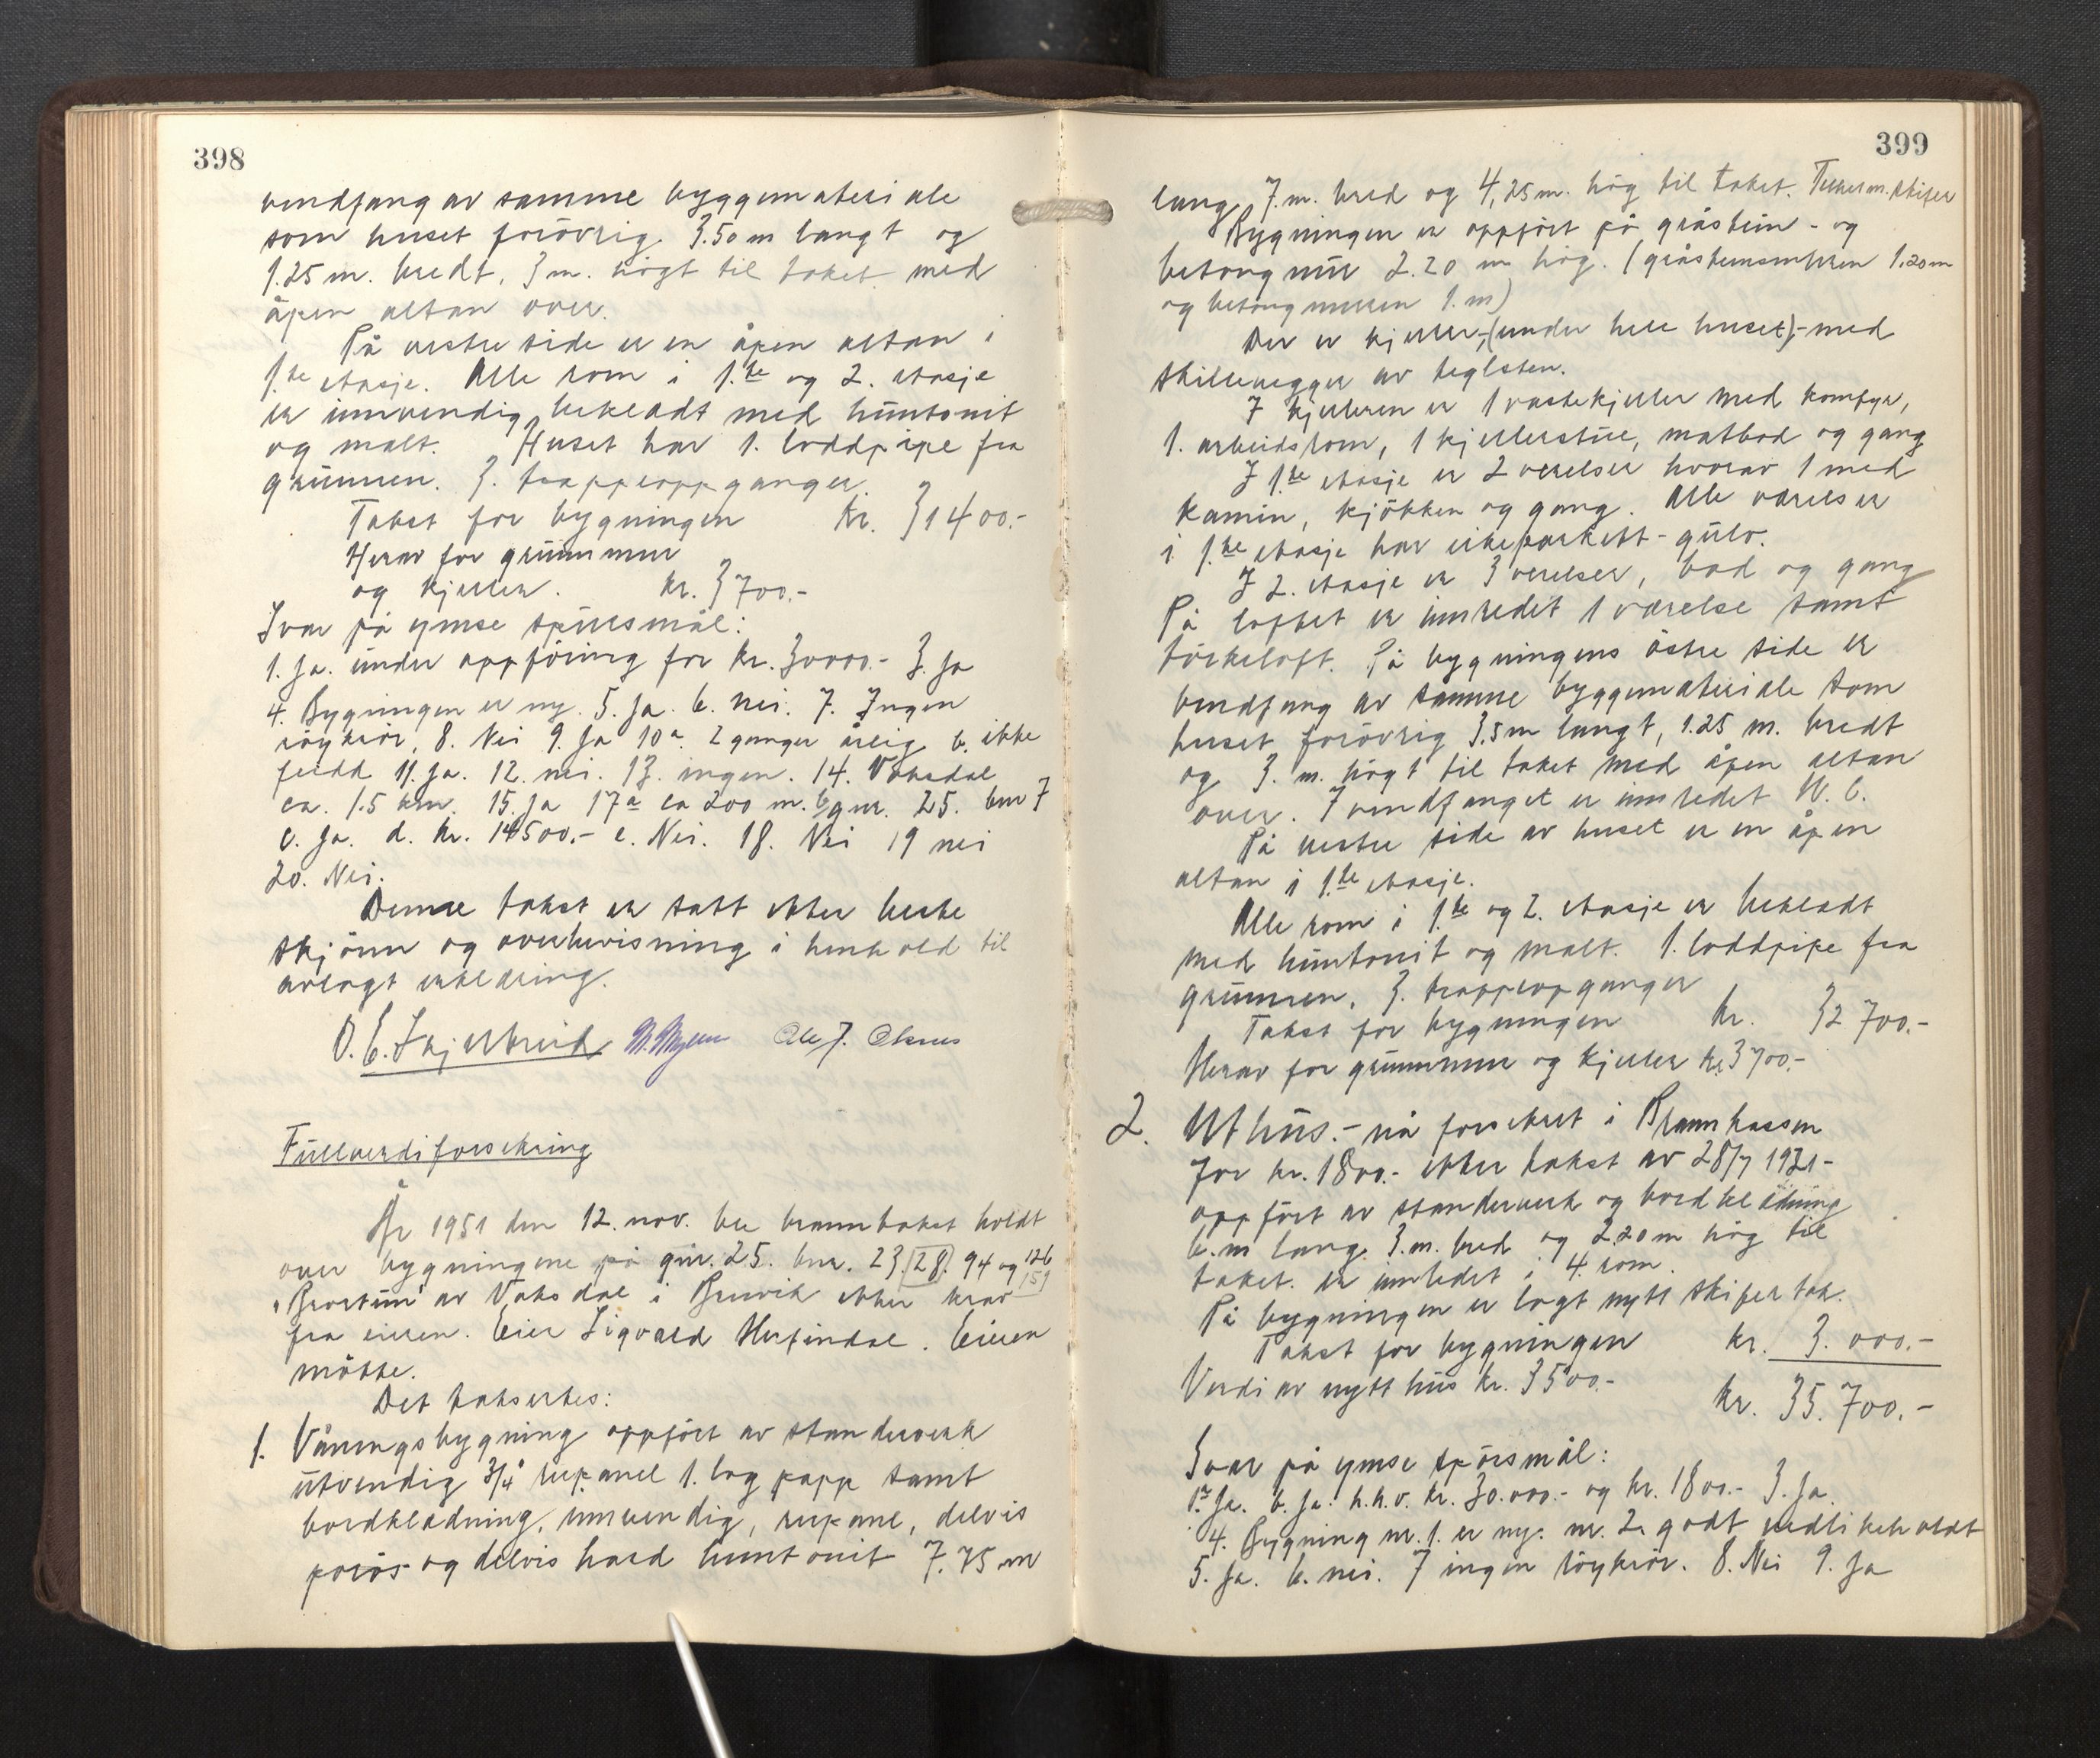 398
vindfang av samme byggemateriale
som huset forövrig. 3.50 m langt og
1.25 m. bredt, 3 m. högt til taket med
åpen altan over.
På vestre side er en åpen altan i
1.ste etasje. Alle rom i 1.ste og 2. etasje
er innvendig bekledt med huntonit
og malt. Huset har 1. loddpipe fra
grunnen. 3. trappeoppganger.
Takst for bygningen kr. 31400.-
Herav for grunnmur
og kjeller. kr. 3700.-
Svar på ymse spursmål:
1. Ja. under oppföring for kr. 30000.- 3. Ja
4. Bygningen er ny. 5. Ja. 6. nei. 7. Ingen
röykrör, 8. Nei 9. Ja 10a. 2 ganger årlig b. ikke
feidd 11. Ja. 12. nei. 13. ingen. 14. Vaksdal
ca. 1.5 km. 15. Ja 17a ca 200 m. b gnr. 25. bnr 7
c. Ja. d. kr. 14500.- e. Nei. 18. Nei 19 nei
20. Nei.
Denne takst er satt etter beste
skjönn og overbevisning i henhold til
avlagt erklæring.
O. E. Skjerbreid Ole J. Olsnes
Fullverdiforsikring
År 1951 den 12. nov. ble branntakst holdt
over bygningene på gnr. 25. bnr. 23. 28. 94 og 126
151
"Brortun" av Vaksdal i Bruvik etter krav
fra eieren. Eier Sigvald Herfindal. Eieren
mötte.
Det taksertes:
1. Våningsbygning oppfört av standerverk
utvendig 3/4" rupanel 1. lag papp samt
bordkledning, innvendig, rupanel, delvis
porös og delvis hard huntonit 7.75 m
399
lang 7. m. bred og 4,25 m. hög til taket. Tekkem. skifer
Bygningen er oppfört på gråstein- og
betongmur 2.20 m hög. (gråsteinsmuren 1.20 m
og betongmuren 1. m)
Der er kjeller,-(under hele huset),-med
skillevegger av teglsten.
I kjelleren er 1 vaskekjeller med komfyr,
1. arbeidsrom, 1 kjellerstue, matbod og gang
I 1.ste etasje er 2 værelser hvorav 1 med
kamin, kjökken og gang. Alle værelser
i 1.ste etasje har eikeparkett-gulv.
I 2. etasje er 3 værelser, bad og gang
På loftet er innredet 1 værelse samt
törkeloft. På bygningens östre side er
vindfang av samme byggemateriale som
huset forövrig 3.5 m langt, 1.25 m. bredt
og 3. m. högt til taket med åpen altan
over. I vindfanget er innredet W. C.
På vestre side av huset er en åpen
altan i 1.ste etasje.
Alle rom i 1.ste og 2. etasje er bekledt
med huntonit og malt. 1. loddpipe fra
grunnen. 3. trappeopganger
Takst for bygningen kr. 32 700.-
Herav for grunnmur og kjeller kr. 3700.-
2. Uthus.- nå forsikret i Brannkassen
for kr. 1800.- etter takst av 28/7 1931-
oppfört av standerverk og bordkledning
6. m lang. 3. m. bred og 2.20 m hög til
taket. er innredet i 4. rom.
På bygningen er lagt nytt skifertak.
Takst for bygningen kr. 3.000.-
Verdi av nytt hus kr. 3500.- kr. 35.700.-
Svar på ymse spörsmål:
1a. Ja. b. Ja. h.h.v. kr. 30.000.- og kr. 1800.- 3. Ja.
4. Bygning nr. 1. er ny. nr. 2. godt vedlikeholdt
5. Ja. 6. nei. 7 ingen röykrör. 8. Nei 9. Ja